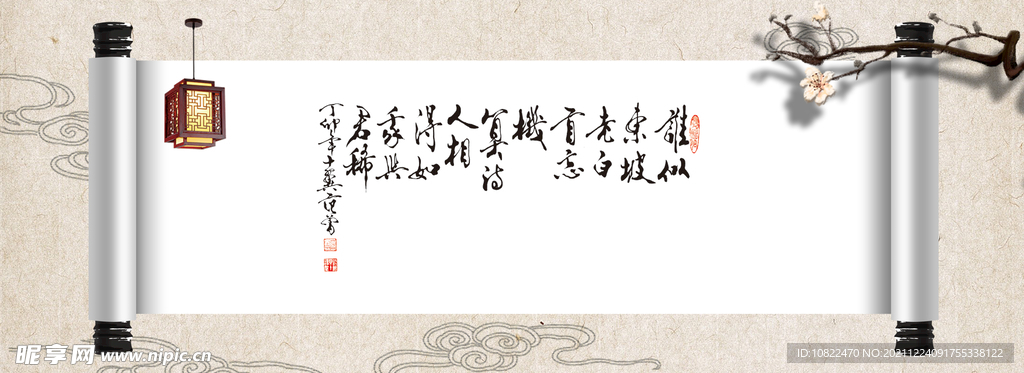 誰似
東坡
老白
首忘
機
算詩
人相
得如
我與
君稀
丁卯年十翼范曾
昵享网 www.nipic.cn
ID:10822470 NO:20211224091755338122